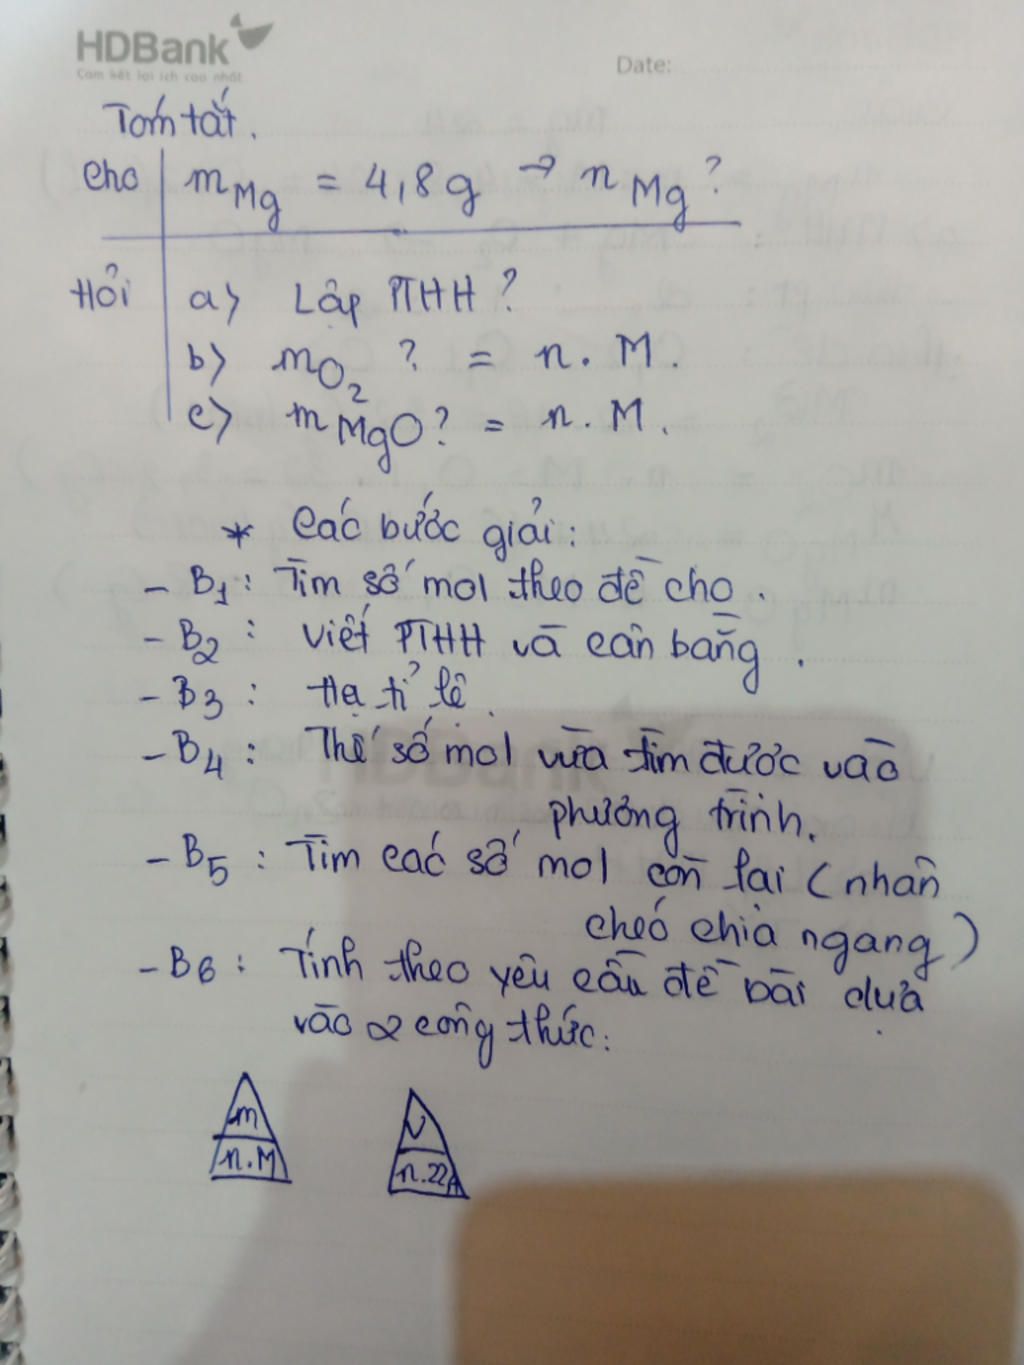 HDBank
Cam kết lợi ích cao nhất
Date:
Tóm tắt.
Cho | mMg = 4,8g → nMg?
Hỏi | a) Lập PTHH?
b) mO2 ? = n.M.
c) mMgO? = n.M.
* Các bước giải:
- B1: Tìm số mol theo đề cho.
- B2: Viết PTHH và cân bằng.
- B3: Hạ tỉ lệ.
- B4: Thế số mol vừa tìm được vào
phương trình.
- B5: Tìm các số mol còn lại (nhân
chéo chia ngang)
- B6: Tính theo yêu cầu đề bài dựa
vào 2 công thức:
m V
n.M n.22,4